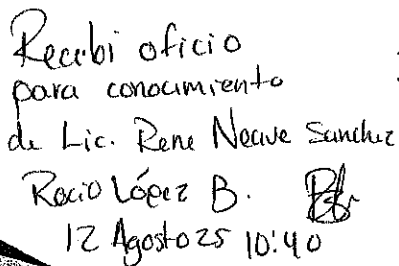 Recibi oficio
para conocimiento
de Lic. Rene Necive Sanchez
Rocio López B.
12 Agosto 25 10:40